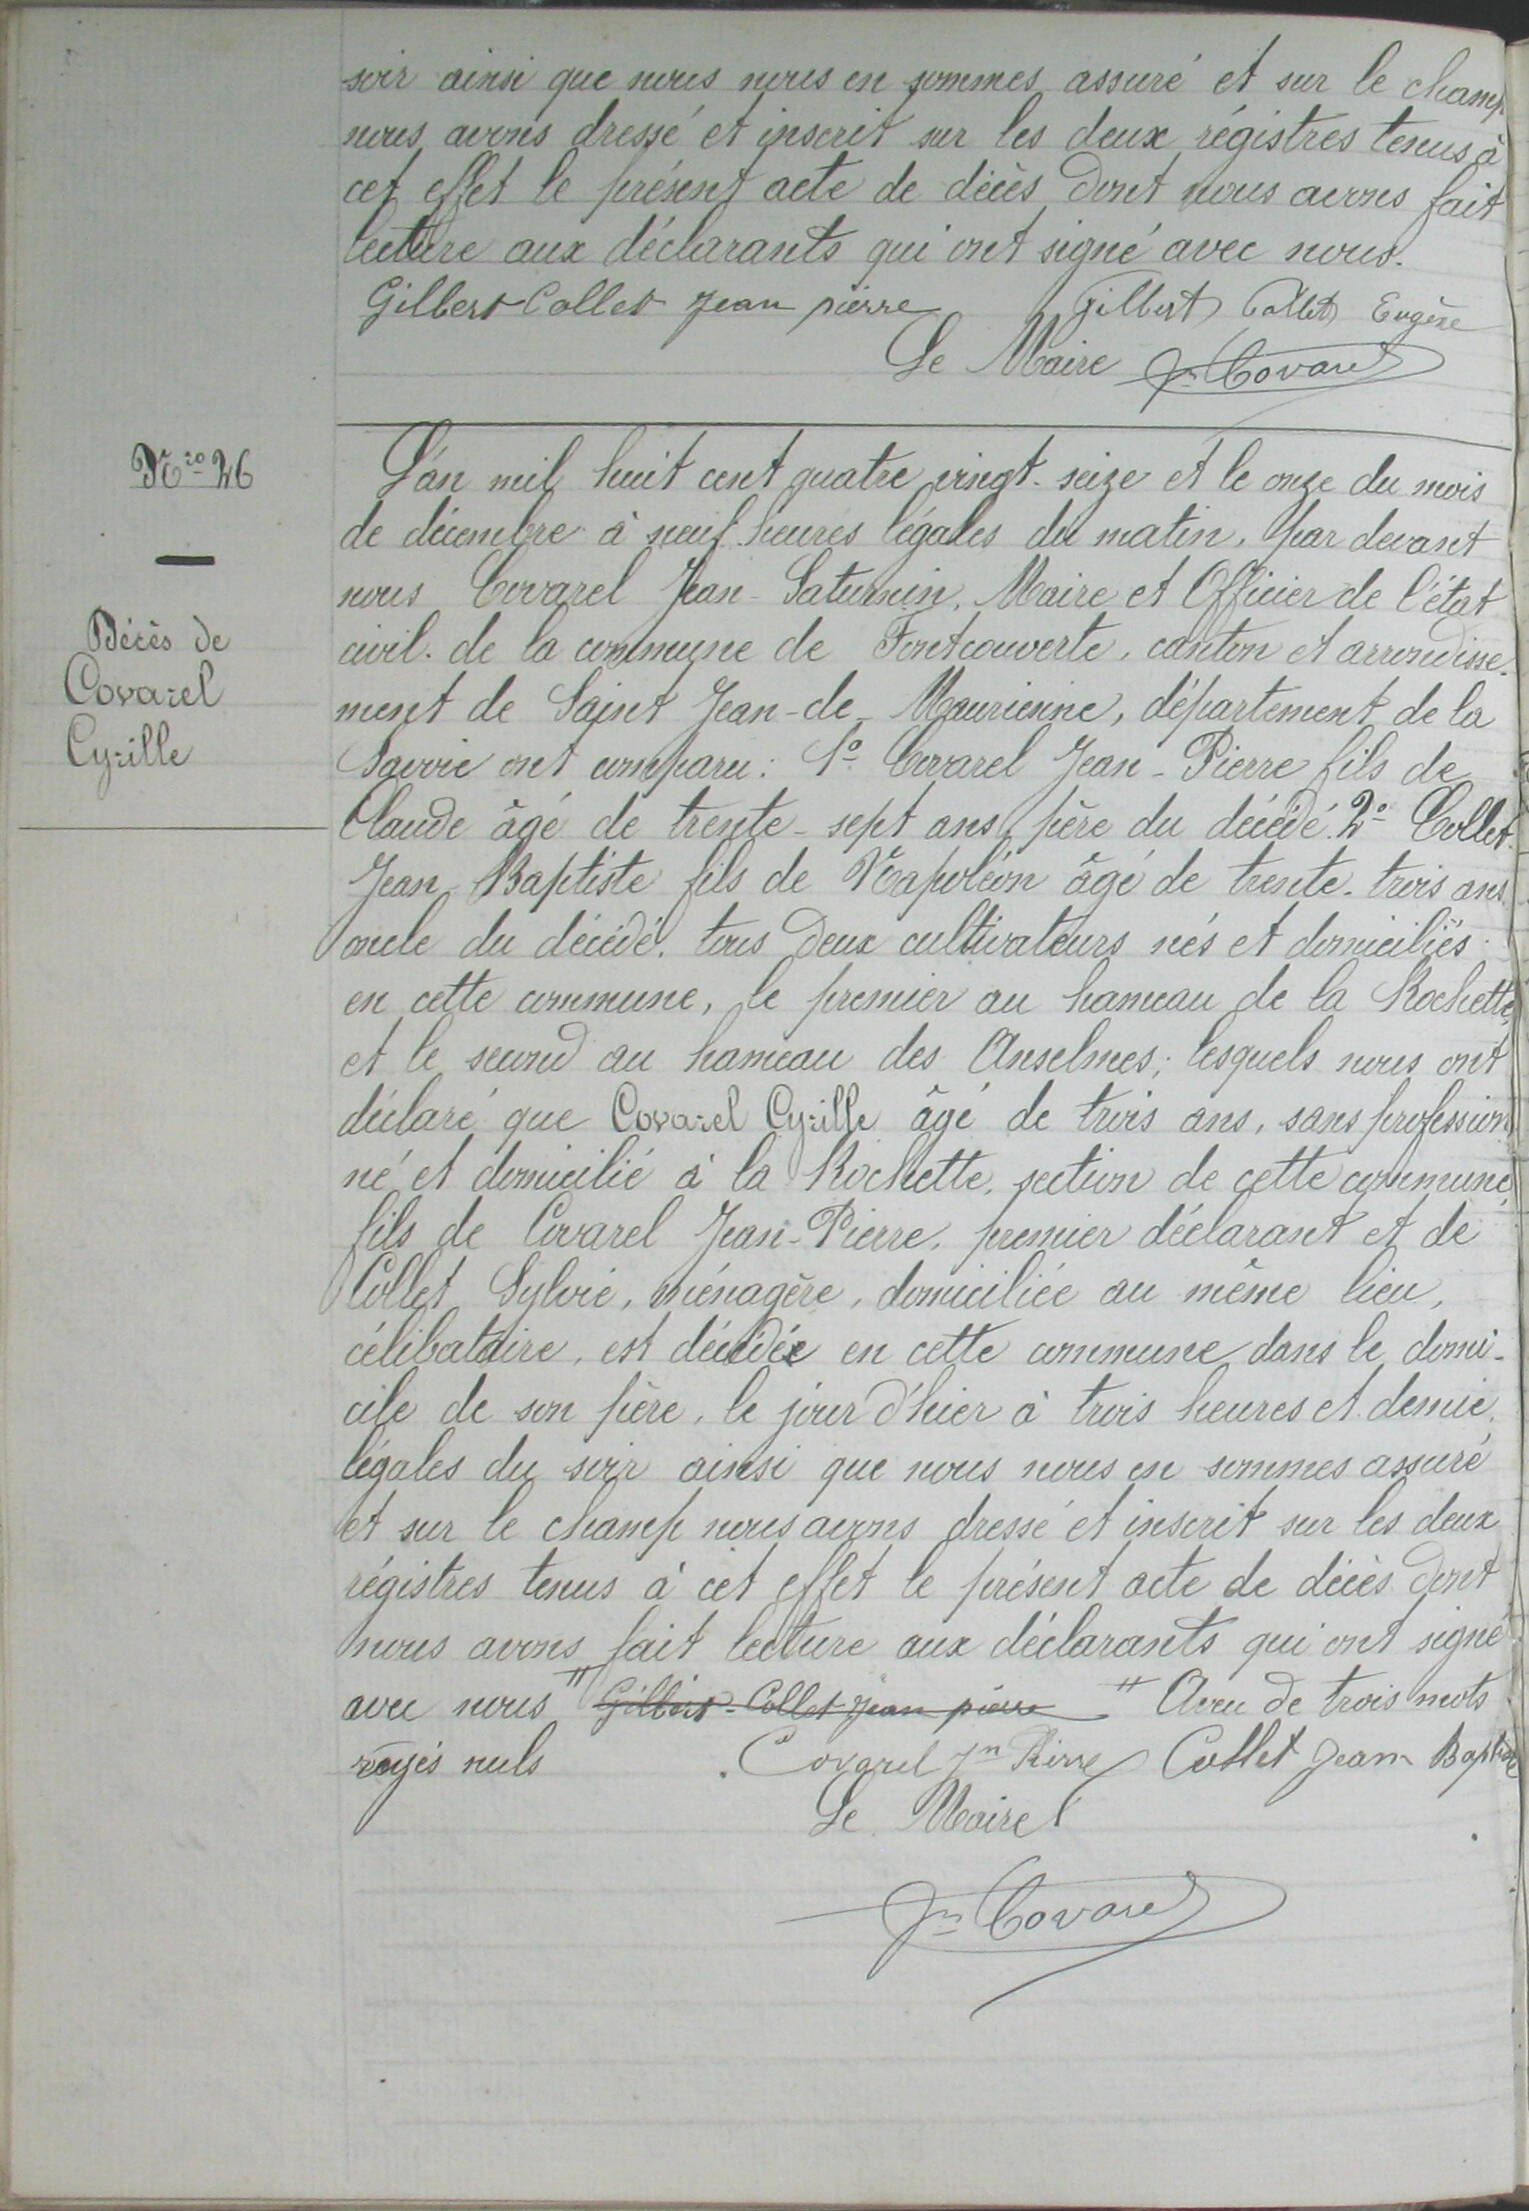 soir ainsi que nous nous en sommes assuré et sur le champ
nous avons dressé et inscrit sur les deux régistres tenus à
cet effet le présent acte de décès dont nous avons fait
lecture aux déclarants qui ont signé avec nous.
Gilbert-Collet Jean pierre Gilbert Collet Eugène
Le Maire Jn Covarel
Nro 26
Décès de
Covarel
Cyrille
L'an mil huit cent quatre vingt-seize et le onze du mois
de décembre à neuf heures légales du matin, par devant
nous Covarel Jean-Saturnin, Maire et Officier de l'état
civil de la commune de Fontcouverte, canton et arrondisse-
ment de Saint Jean-de-Maurienne, département de la
Savoie ont comparu: 1º Covarel Jean-Pierre fils de
Claude âgé de trente-sept ans, père du décédé. 2º Collet
Jean-Baptiste fils de Napoléon âgé de trente-trois ans
oncle du décédé, tous deux cultivateurs nés et domiciliés
en cette commune, le premier au hameau de la Rochette
et le second au hameau des Anselmes; lesquels nous ont
déclaré que Covarel Cyrille âgé de trois ans, sans profession
né et domicilié à la Rochette, section de cette commune,
fils de Covarel Jean-Pierre, premier déclarant et de
Collet Sylvie, ménagère, domiciliée au même lieu,
célibataire, est décédée en cette commune dans le domi-
cile de son père, le jour d'hier à trois heures et demie
légales du soir ainsi que nous nous en sommes assuré
et sur le champ nous avons dressé et inscrit sur les deux
régistres tenus à cet effet le présent acte de décès dont
nous avons fait lecture aux déclarants qui ont signé
avec nous " Gilbert-Collet Jean pierre " Aveu de trois mots
rayés nuls . Covarel Jn Pierre Collet Jean Baptiste
Le Maire
Jn Covarel